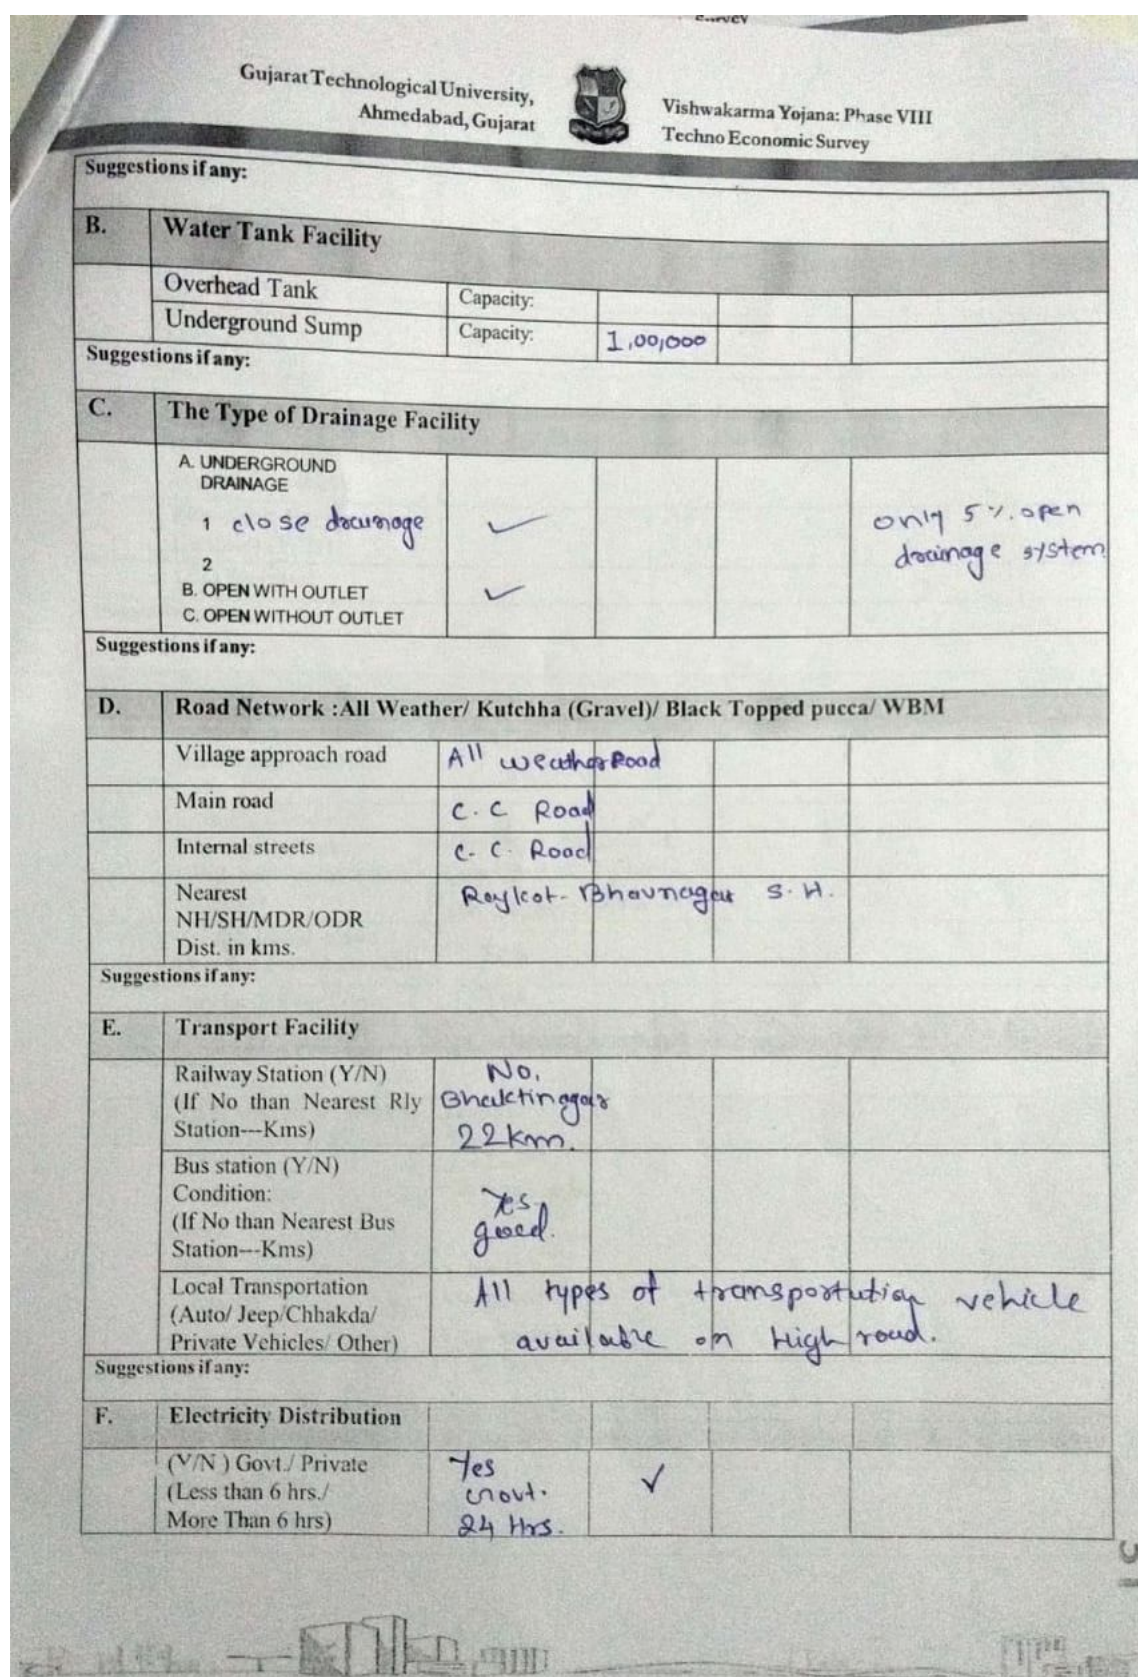 Survey
Gujarat Technological University,
Ahmedabad, Gujarat
Vishwakarma Yojana: Phase VIII
Techno Economic Survey
Suggestions if any:
B. Water Tank Facility
Overhead Tank Capacity:
Underground Sump Capacity: 1,00,000
Suggestions if any:
C. The Type of Drainage Facility
A. UNDERGROUND
DRAINAGE
1 close drainage ✓ only 5 %. open
drainage system
2
B. OPEN WITH OUTLET ✓
C. OPEN WITHOUT OUTLET
Suggestions if any:
D. Road Network :All Weather/ Kutchha (Gravel)/ Black Topped pucca/ WBM
Village approach road All weather Road
Main road C.C Road
Internal streets C.C. Road
Nearest Rajkot-Bhavnagar S.H.
NH/SH/MDR/ODR
Dist. in kms.
Suggestions if any:
E. Transport Facility
Railway Station (Y/N) No.
(If No than Nearest Rly Bhaktinagar
Station---Kms) 22km.
Bus station (Y/N)
Condition: Yes
(If No than Nearest Bus good.
Station---Kms)
Local Transportation All types of transportution vehicle
(Auto/ Jeep/Chhakda/ available on High road.
Private Vehicles/ Other)
Suggestions if any:
F. Electricity Distribution
(Y/N ) Govt./ Private Yes ✓
(Less than 6 hrs./ Govt.
More Than 6 hrs) 24 Hrs.
31